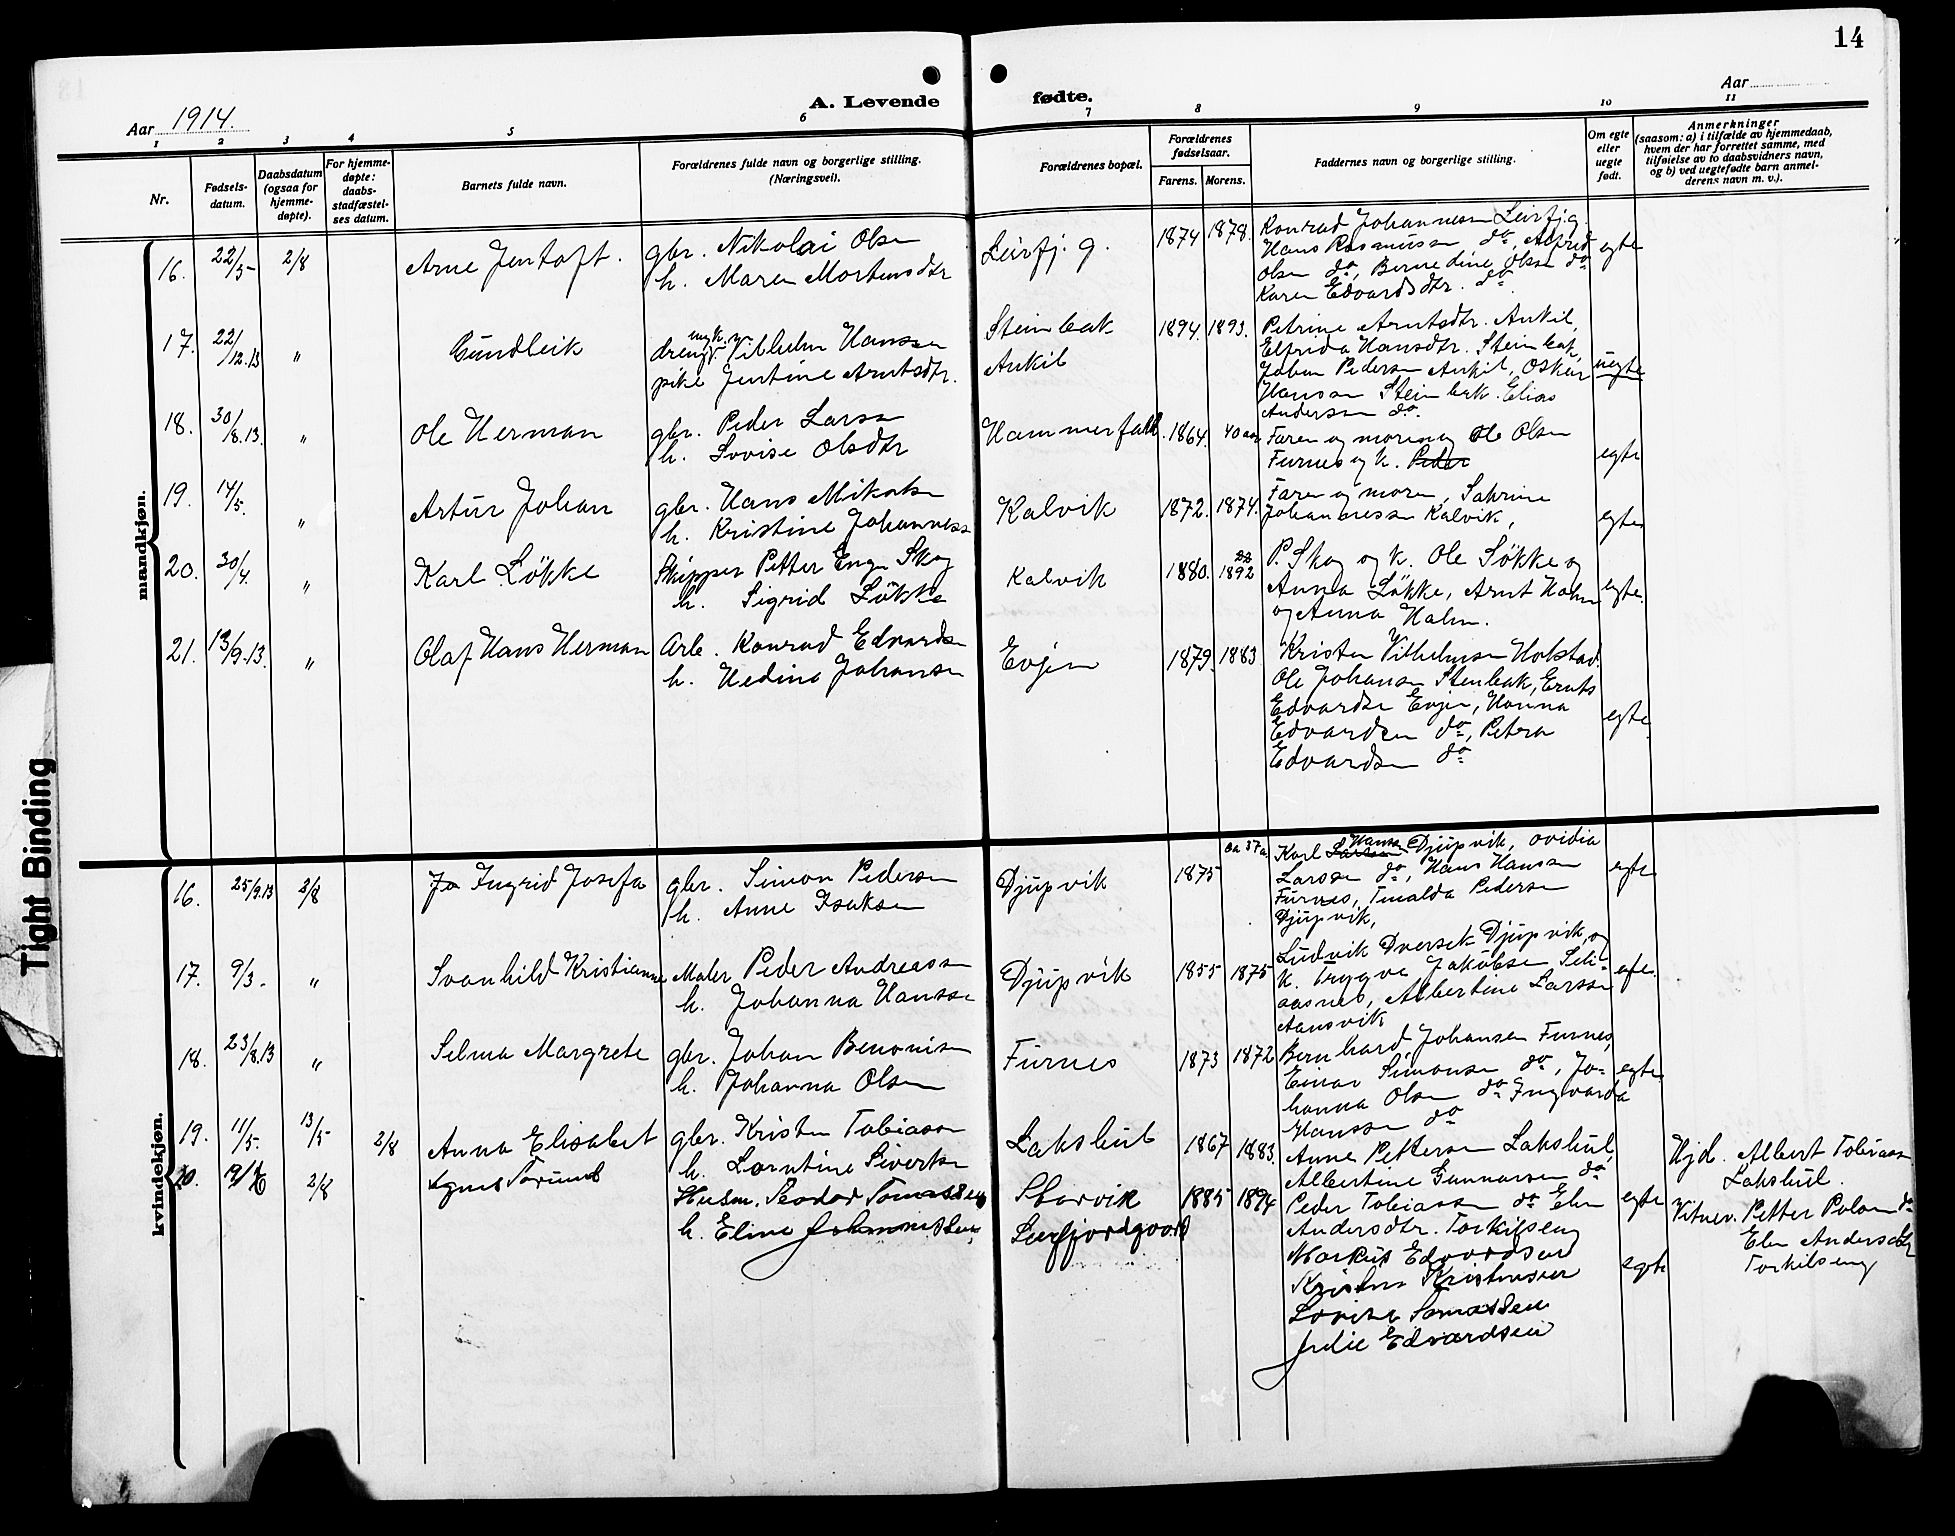 14
Aar 1914.
A. Levende fødte.
Aar
1 2 3 4 5 6 7 8 9 10 11
Nr.
Fødsels-
datum.
Daabsdatum
(ogsaa for
hjemme-
døpte).
For hjemme-
døpte:
daabs-
stadfæstel-
ses datum.
Barnets fulde navn.
Forældrenes fulde navn og borgerlige stilling.
(Næringsvei).
Forældrenes bopæl.
Forældrenes
fødselsaar.
Farens. Morens.
Faddernes navn og borgerlige stilling.
Om egte
eller
uegte
født.
Anmerkninger
(saasom: a) i tilfælde av hjemmedaab,
hvem der har forrettet samme, med
tilføielse av to daabsvidners navn,
og b) ved uegtefødte barn anmel-
derens navn m. v.).
mandkjøn.
16. 22/5 2/8 Arne Jentoft. gbr. Nikolai Olsen
h. Maren Mortensdtr
Leirfj. g. 1874 1878.
Konrad Johannesen Leirfj g.
Hans Rasmussen do, Alfred
Olsen do, Bernedine Olsen do
Karen Edvardsdtr. do.
egte
17. 22/12.13 " Gundleik
ungk.
dreng Vilhelm Hansen
pike Jentine Arntsdtr.
Steinbak
Ankil
1894. 1893.
Petrine Arntsdtr. Ankil,
Elfrida Hansdtr. Steinbak,
Johan Pedersen Ankil, Oskar
Hansen Steinbak. Elias
Andersen do.
uegte
18. 30/8.13. " Ole Herman gbr. Peder Larsen
h. Lovise Olsdtr
Hammerfald. 1864. 40 aar
Faren og moren og Ole Olsen
Furnes og k. Peder
egte
19. 14/5. " Artur Johan gbr. Hans Mikalsen
h. Kristine Johannessen
Kalvik 1872. 1874.
Faren og moren, Sabrine
Johannessen Kalvik,
egte
20. 30/4. " Karl Løkke Skipper Petter Eng. Skog
h. Sigrid Løkke
Kalvik 1880. 1892
P. Skog og k. Ole Løkke og
Anna Løkke, Arnt Holm
og Anna Holm.
egte.
21. 13/9.13. " Olaf Hans Herman Arb. Konrad Edvardsen
h. Hedina Johansen
Evjen 1879. 1883
Kristen Vilhelmsen Holstad.
Ole Johansen Stenbak, Ernts
Edvardsen Evjen, Hanna
Edvardsen do, Petra
Edvardsen do
egte.
kvindekjøn.
16. 25/9.13 2/8 Jo Ingrid Josefa gbr. Simon Pedersen
h. Anne Isaksen
Djupvik 1875 ca 37 a.
Karl Larsen Hansen Djupvik, Ovidia
Larssen do, Hans Hanssen
Furnes, Tinalda Pedersen
Djupvik,
egte
17. 9/3. " Svanhild Kristianne Maler Peder Andreassen
h. Johanna Hanssen
Djupvik 1855 1875
Ludvik Dverset Djupvik, og
k. Trygve Jakobsen Seli-
aasnes, Albertine Larssen
Aansvik
egte.
18. 23/8.13 " Selma Margrete gbr. Johan Benonisen
h. Johanna Olsen
Furnes 1873 1872
Bernhard Johansen Furnes,
Einar Simonsen do, Jo-
hanna Olsen do Ingvarda
Hanssen do
egte.
19. 11/5. 13/5 2/8 Anna Elisabet gbr. Kristen Tobiassen
h. Lorntine Sivertsen
Lakshul 1867 1883.
Anne Pettersen Lakshul,
Albertine Gunnarsen do
Peder Tobiassen do Elen
Andersdtr. Torkilseng
egte
Hjd. Albert Tobiassen
Lakshul.
Vitner. Petter Polsen do
Elen Andersdtr
Torkilseng
20. 2/8 Agnes Torund Husm. Teodor Tomassen
h. Eline Johannessen
Storvik
Leirfjordgaard
1885 1894
Markus Edvardsen
Kristine Kristensen
Lovise Tomassen
Julie Edvardsen
egte
Tight Binding